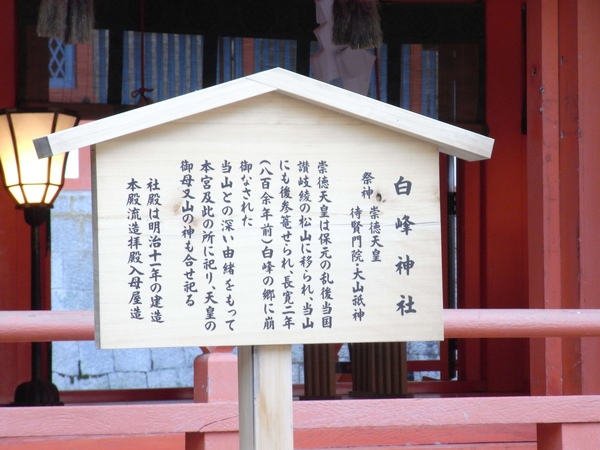 白峰神社
祭神 崇徳天皇
待賢門院・大山祇神
崇徳天皇は保元の乱後当国
讃岐綾の松山に移られ、当山
にも後参篭せられ、長寛二年
(八百余年前)白峰の郷に崩
御なされた
当山との深い由緒をもって
本宮及此の所に祀り、天皇の
御母又山の神も合せ祀る
社殿は明治十一年の建造
本殿流造拝殿入母屋造